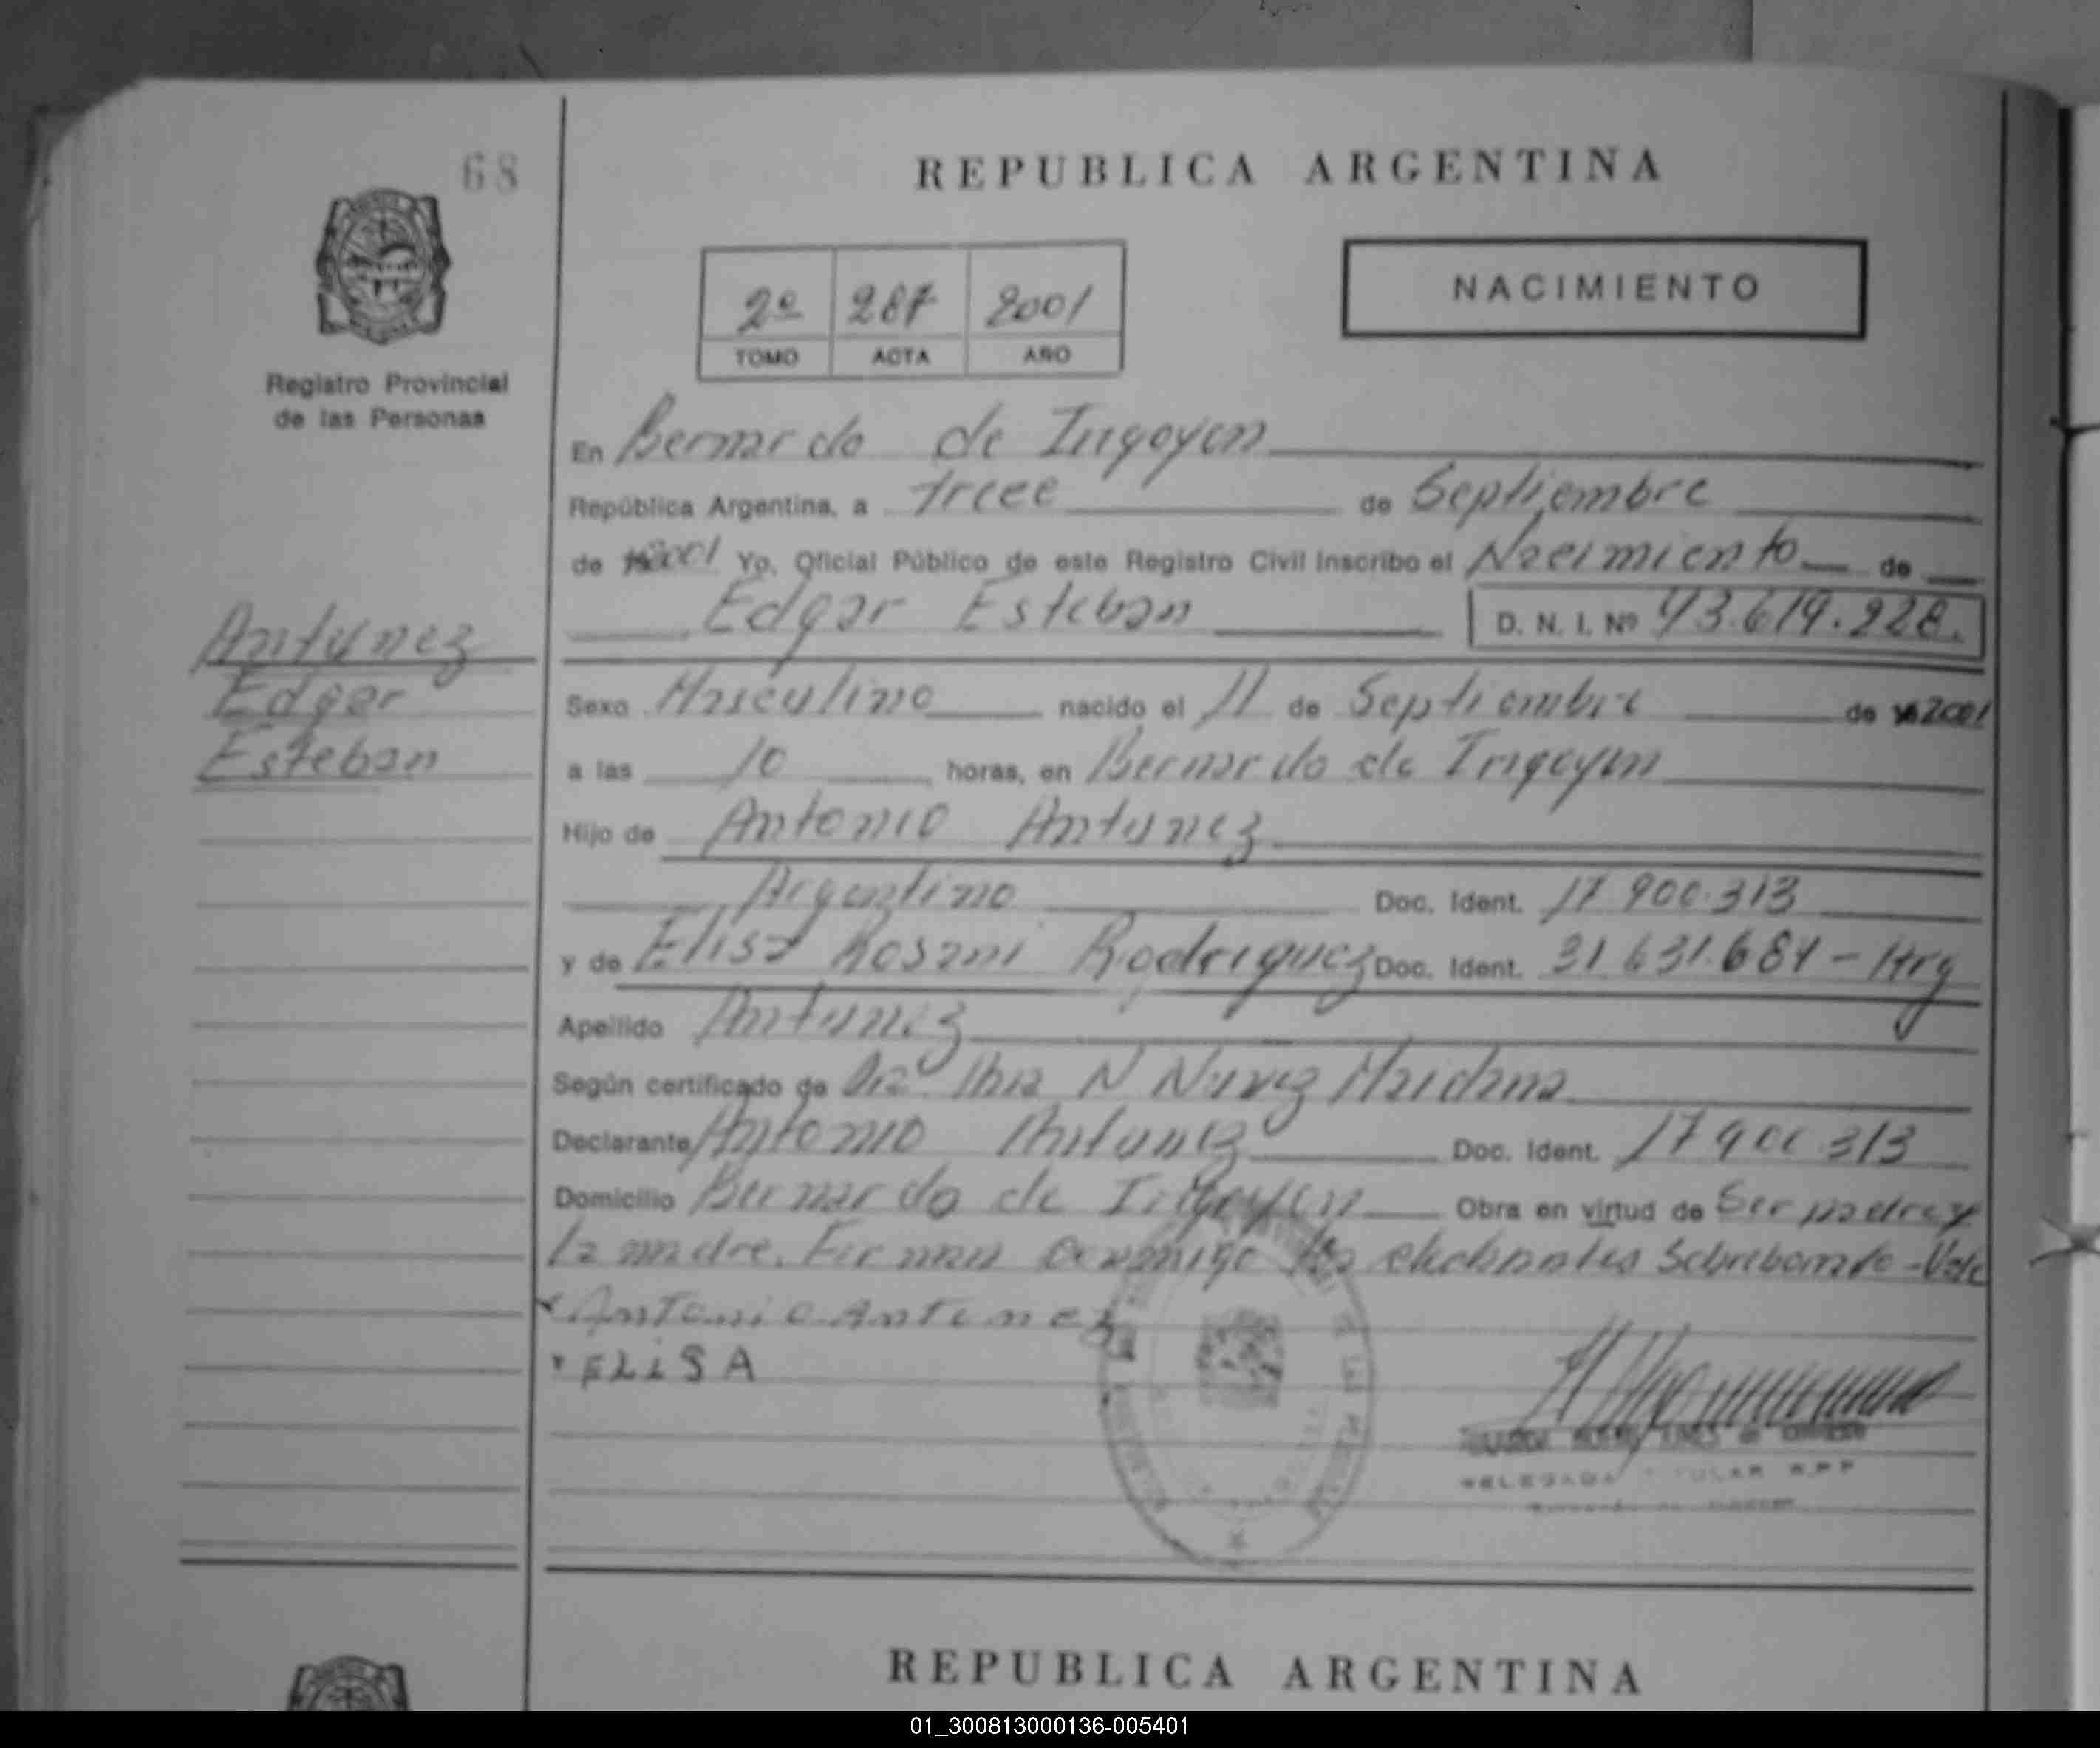 68
REPUBLICA ARGENTINA
NACIMIENTO
2º 287 2001
TOMO ACTA AÑO
Registro Provincial
de las Personas
En Bernardo de Irigoyen
República Argentina, a trece de Septiembre
de 2001 Yo, Oficial Público de este Registro Civil inscribo el Nacimiento de
Edgar Esteban D. N. I. Nº 43.619.228.
Antunez
Edgar
Esteban
Sexo Masculino nacido el 11 de Septiembre de 2001
a las 10 horas, en Bernardo de Irigoyen
Hijo de Antonio Antunez
Argentino Doc. Ident. 17 900.313
y de Elisa Rosani Rodriguez Doc. Ident. 31 631.684 - Arg
Apellido Antunez
Según certificado de Dra N Nuñez Maidana
Declarante Antonio Antunez Doc. Ident. 17 900 313
Domicilio Bernardo de Irigoyen Obra en virtud de Ser padre y
la madre. Firman conmigo los Vale
Antonio Antunez
ELiSA
REPUBLICA ARGENTINA
01_300813000136-005401